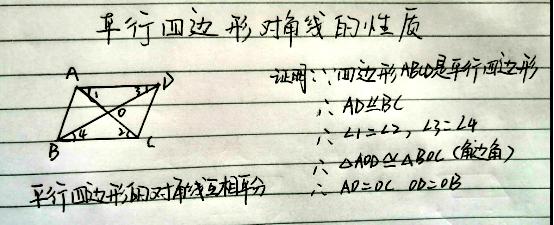 平行四边形对角线的性质
A
D
1
3
O
4
2
B
C
平行四边形的对角线互相平分
证明:∵四边形ABCD是平行四边形
∴ AD⫽BC
∴ ∠1=∠2, ∠3=∠4
∴ △AOD≌△BOC (角边角)
∴ AO=OC OD=OB